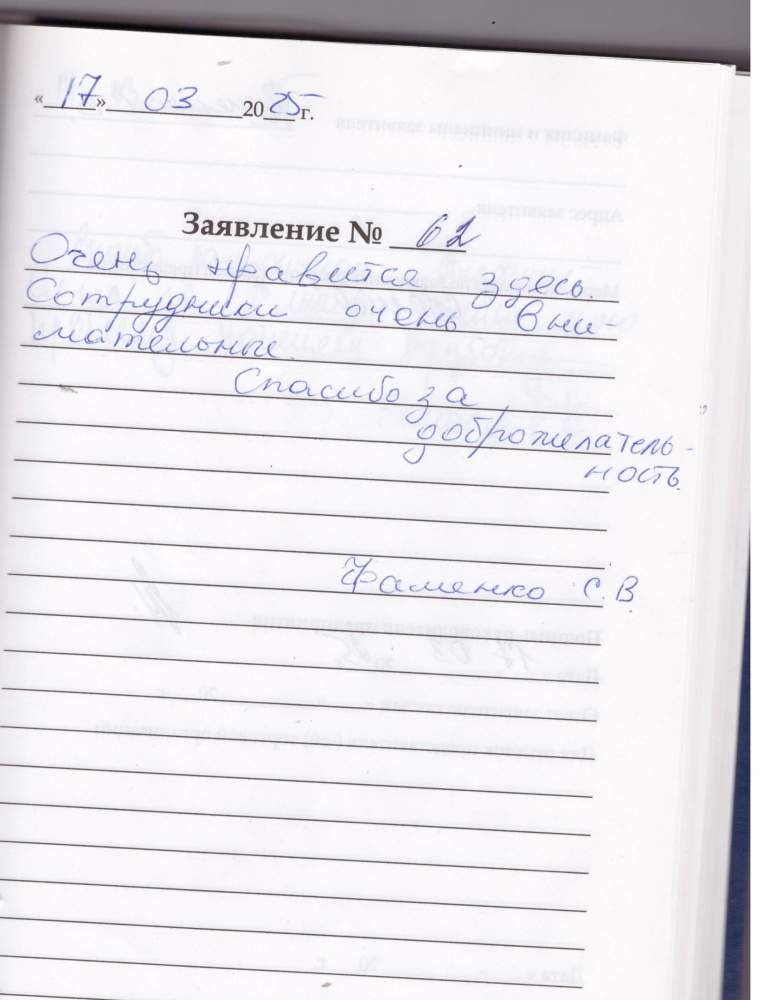 «17» 03 2025 г.
Заявление № 62
Очень нравится здесь.
Сотрудники очень вни-
мательные.
Спасибо за
доброжилатель-
ность.
С.В.